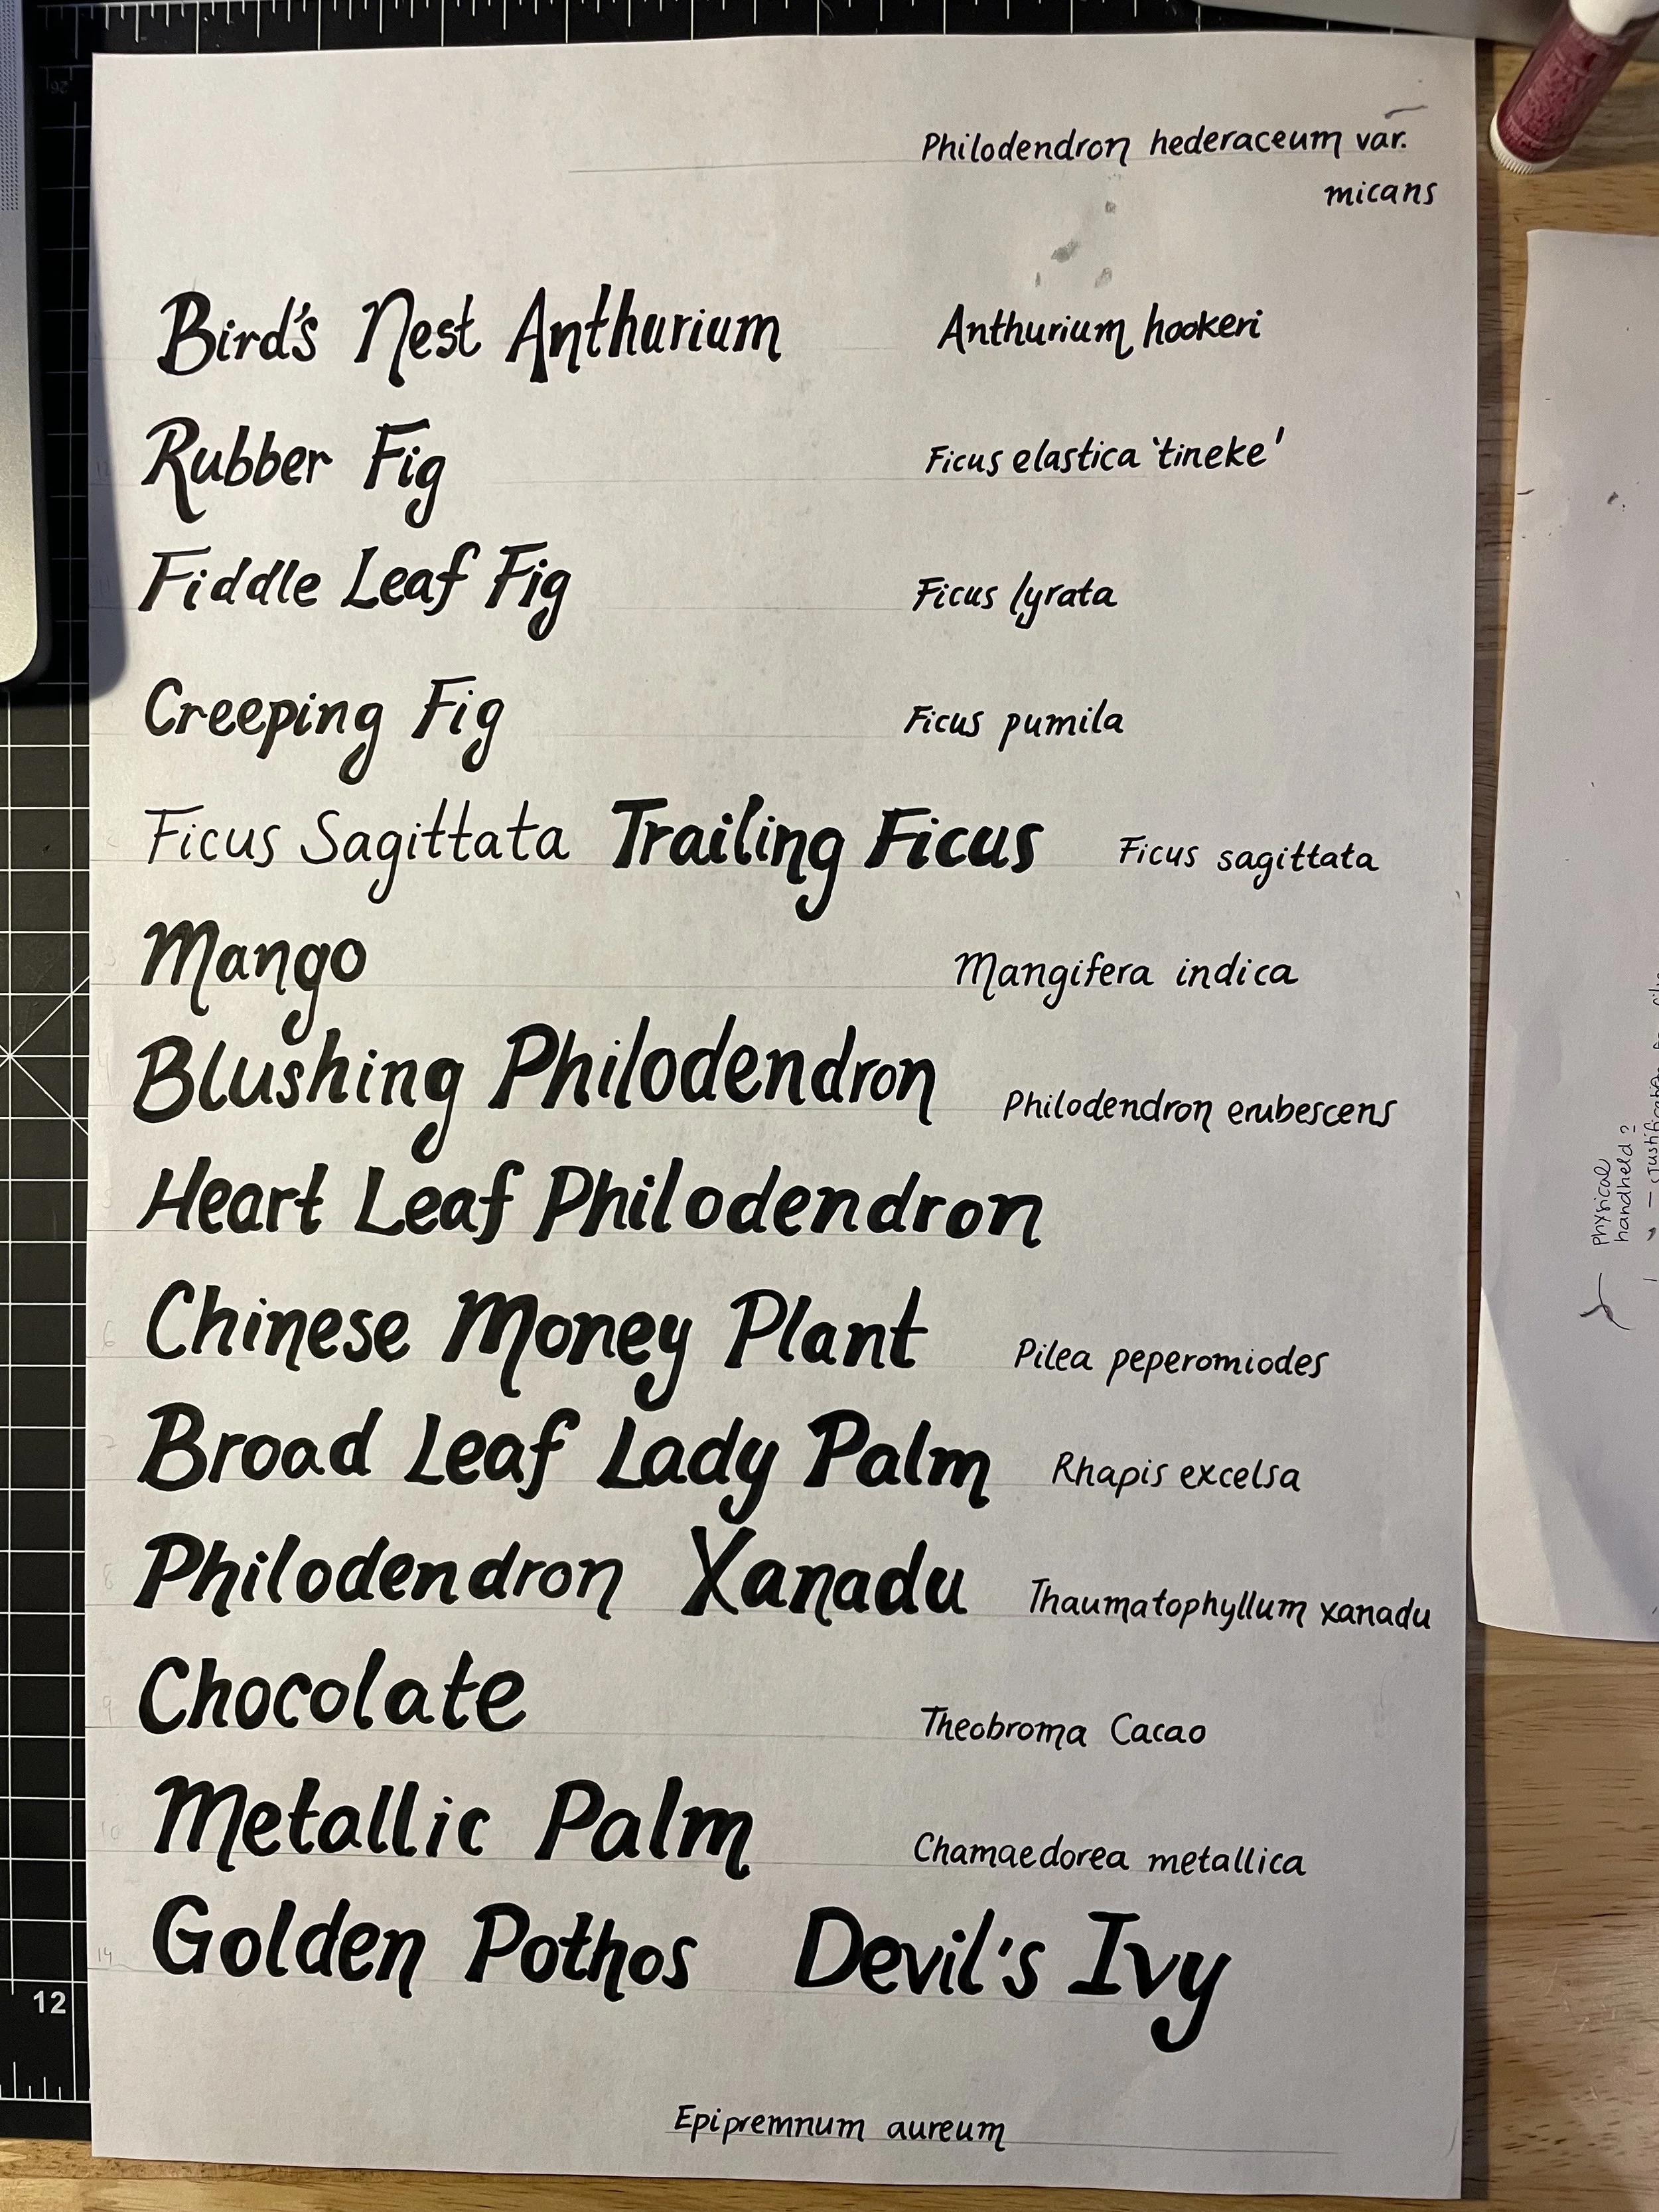 Philodendron hederaceum var.
micans
Bird's Nest Anthurium Anthurium hookeri
Rubber Fig Ficus elastica 'tineke'
Fiddle Leaf Fig Ficus lyrata
Creeping Fig Ficus pumila
Ficus Sagittata Trailing Ficus Ficus sagittata
Mango Mangifera indica
Blushing Philodendron Philodendron erubescens
Heart Leaf Philodendron
Chinese Money Plant Pilea peperomiodes
Broad Leaf Lady Palm Rhapis excelsa
Philodendron Xanadu Thaumatophyllum xanadu
Chocolate Theobroma Cacao
Metallic Palm Chamaedorea metallica
14 Golden Pothos Devil's Ivy
Epipremnum aureum
12
Physical
handheld?